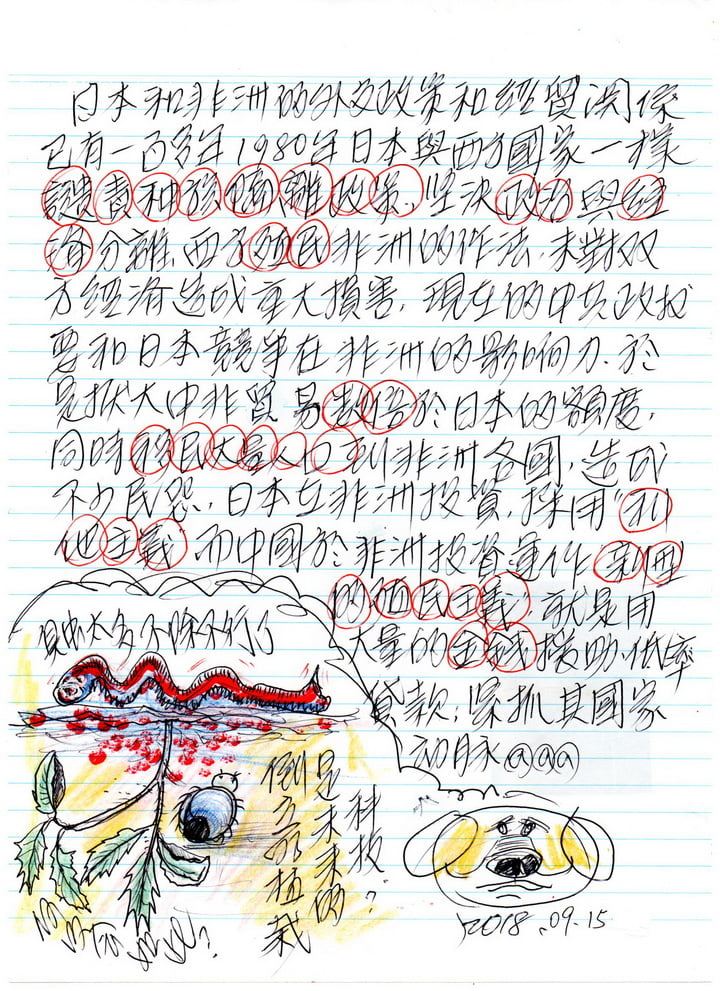 日本和非洲的外交政策和經貿関係
已有一百多年1980年日本與西方國家一樣
譴責种族隔離政策,坚決政治與経
済分離.西方殖民非洲的作法,未對双
方経済造成重大損害.現在的中共政权
要和日本競爭在非洲的影响力.於
是扩大中非貿易數倍於日本的額度,
同時移民大量人口到非洲各國,造成
不少民怨,日本在非洲投資,採用"利
他主義"而中國於非洲投資運作"新型
的殖民主義"就是用
大量的金錢援助.低率
貸款;緊抓其國家
动脉@@@
太多不除不行了
是未來的
科技?
倒立的植栽
2018.09.15